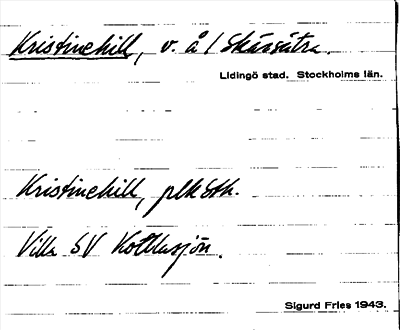 Kristinehill, v. å 1 Skärsätra.
Lidingö stad. Stockholms län.
Kristinehill, plk Sth.
Villa SV Kottlasjön.
Sigurd Fries 1943.